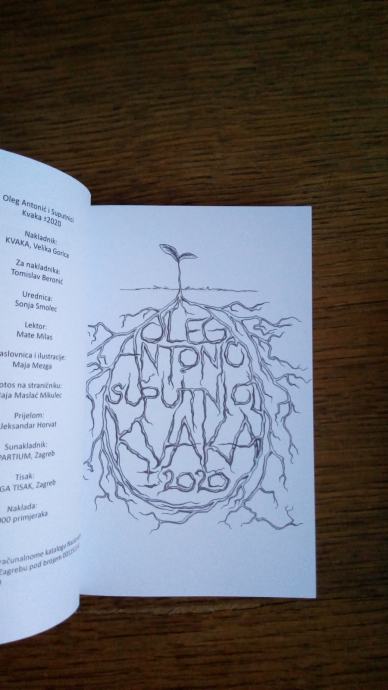 Oleg Antonić i Suputnici
Kvaka ±2020
Nakladnik:
KVAKA, Velika Gorica
Za nakladnika:
Tomislav Beronić
Urednica:
Sonja Smolec
Lektor:
Mate Milas
aslovnica i ilustracije:
Maja Mezga
otos na straničniku:
aja Maslać Mikulec
Prijelom:
leksandar Horvat
Sunakladnik:
PARTIUM, Zagreb
Tisak:
GA TISAK, Zagreb
Naklada:
00 primjeraka
računalnome katalogu
Zagrebu pod brojem
OLEG
ANTONIĆ
i
SUPUTNICI
KVAKA
±2020